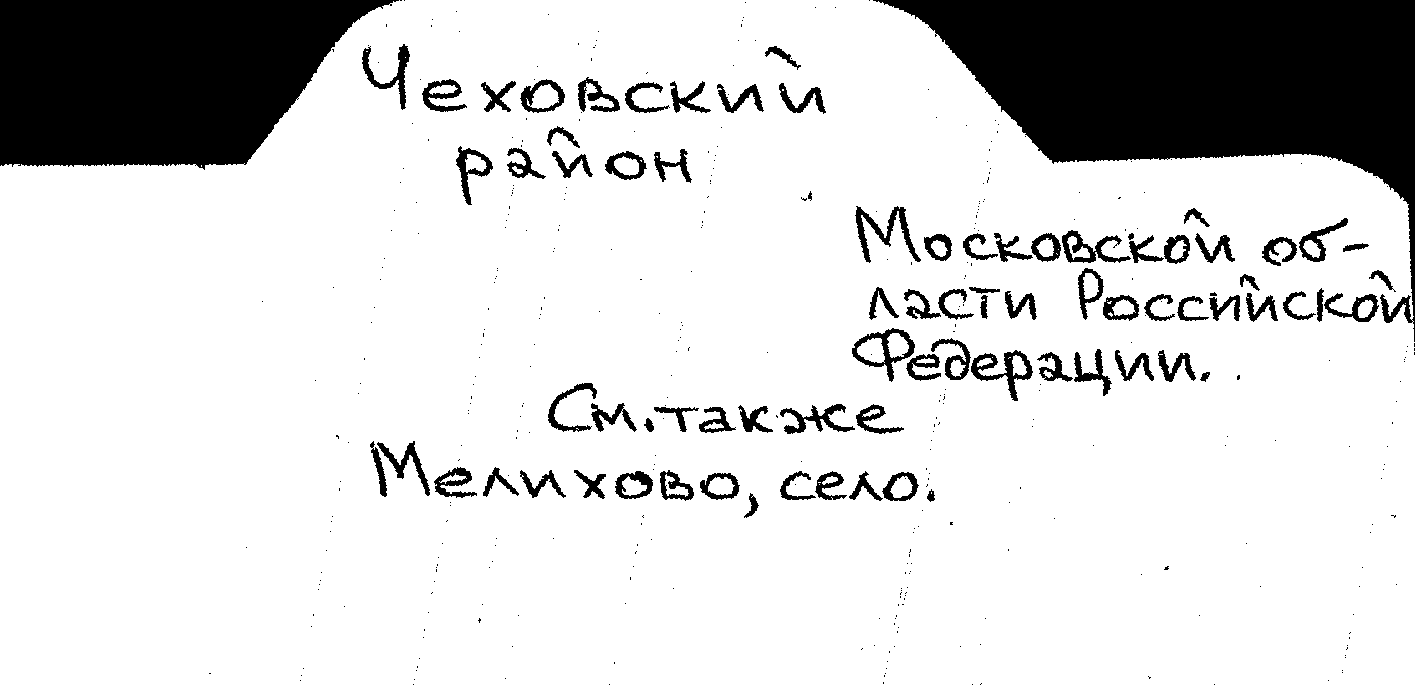 Чеховский
район
Московской об-
ласти Российской
Федерации.
См. также
Мелихово, село.